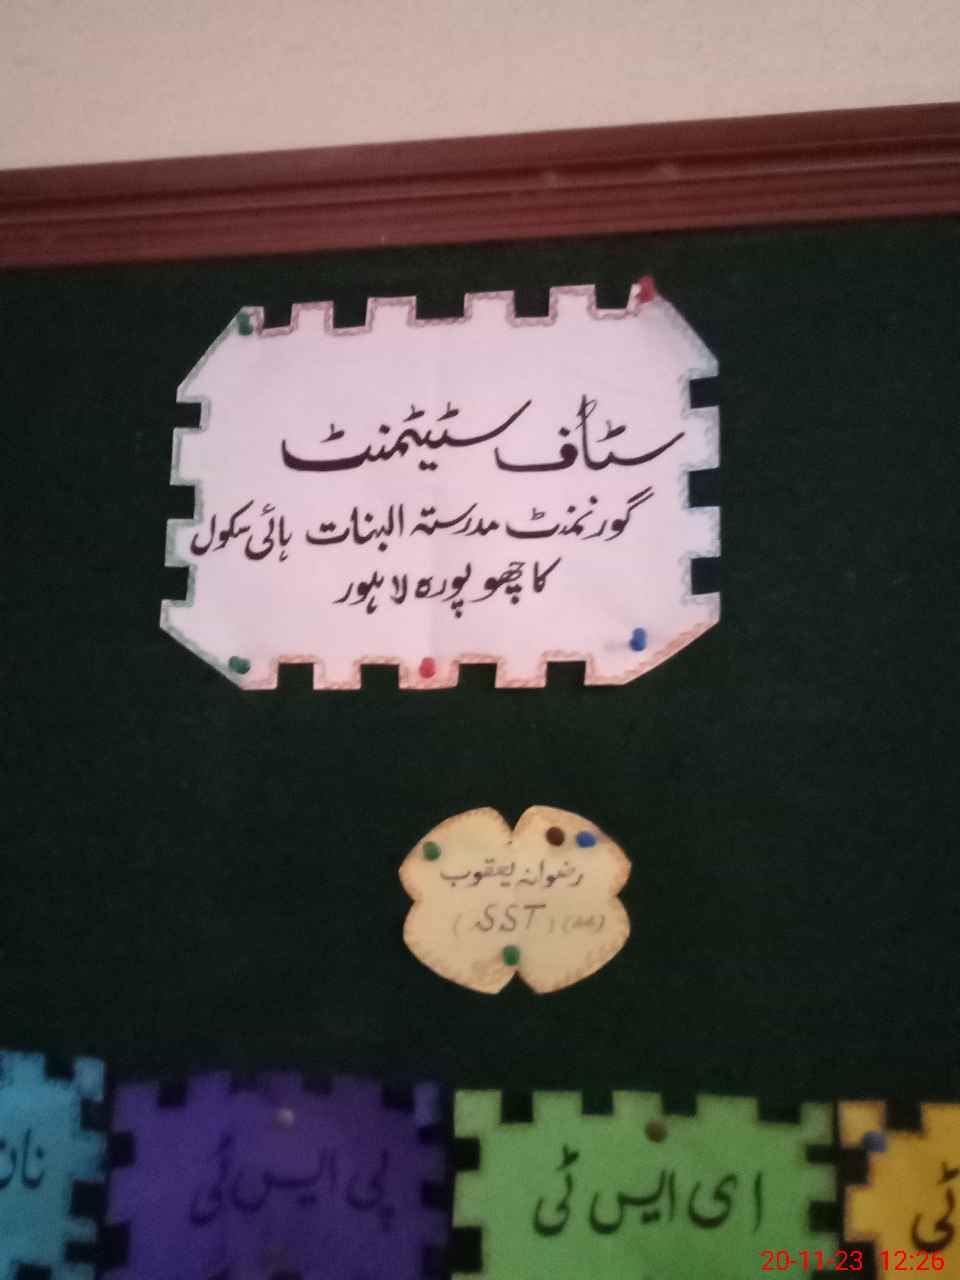 سٹاف سٹیٹمنٹ
گورنمنٹ مدرستہ البنات ہائی سکول
کاچھو پورہ لاہور
رضوانہ یعقوب
(SST)
نان
پی ایس ٹی
ای ایس ٹی
ٹی
20-11-23 12:26